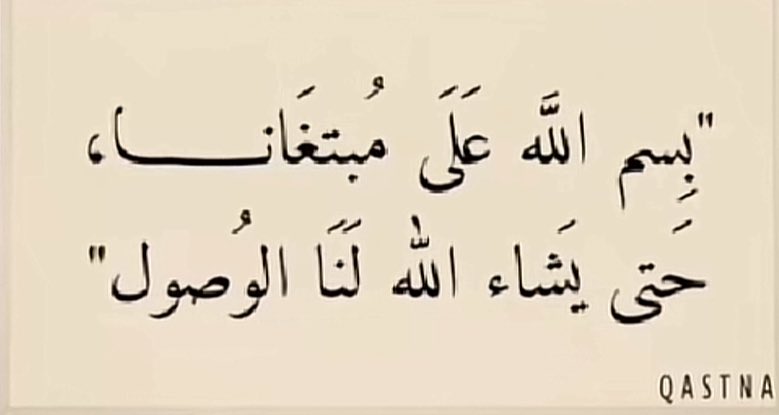 "بِسم اللَّه عَلَى مُبتغَانـــــا،
حَتى يَشاء الله لَنَا الوُصول"
QASTNA